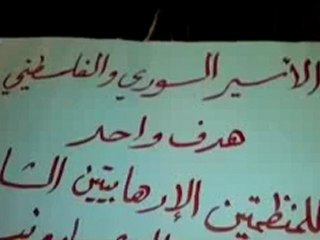 الأسير السوري والفلسطيني
هدف واحد
للمنظمتين الإرهابيتين